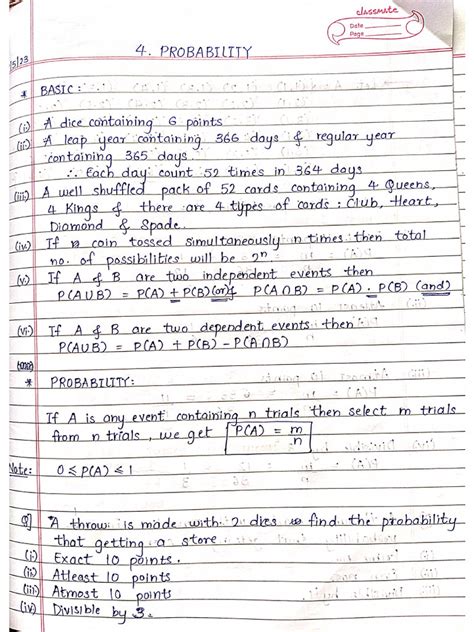 classmate
Date
Page
5/23
4. PROBABILITY
* BASIC :
(i) A dice containing 6 points
(ii) A leap year containing 366 days & regular year
containing 365 days
∴ Each day count 52 times in 364 days
(iii) A well shuffled pack of 52 cards containing 4 Queens,
4 Kings & there are 4 types of cards : Club, Heart,
Diamond & Spade.
(iv) If n coin tossed simultaneously n times then total
no. of possibilities will be 2ⁿ
(v) If A & B are two independent events then
P(A∪B) = P(A) + P(B) (or) & P(A∩B) = P(A) . P(B) (and)
(vi) If A & B are two dependent events then
P(A∪B) = P(A) + P(B) - P(A∩B)
* PROBABILITY:
If A is any event containing n trials then select m trials
from n trials, we get P(A) = m/n
Note: 0 ≤ P(A) ≤ 1
Q] A throw is made with 2 dies find the probability
that getting a store
(i) Exact 10 points.
(ii) Atleast 10 points
(iii) Atmost 10 points
(iv) Divisible by 3.